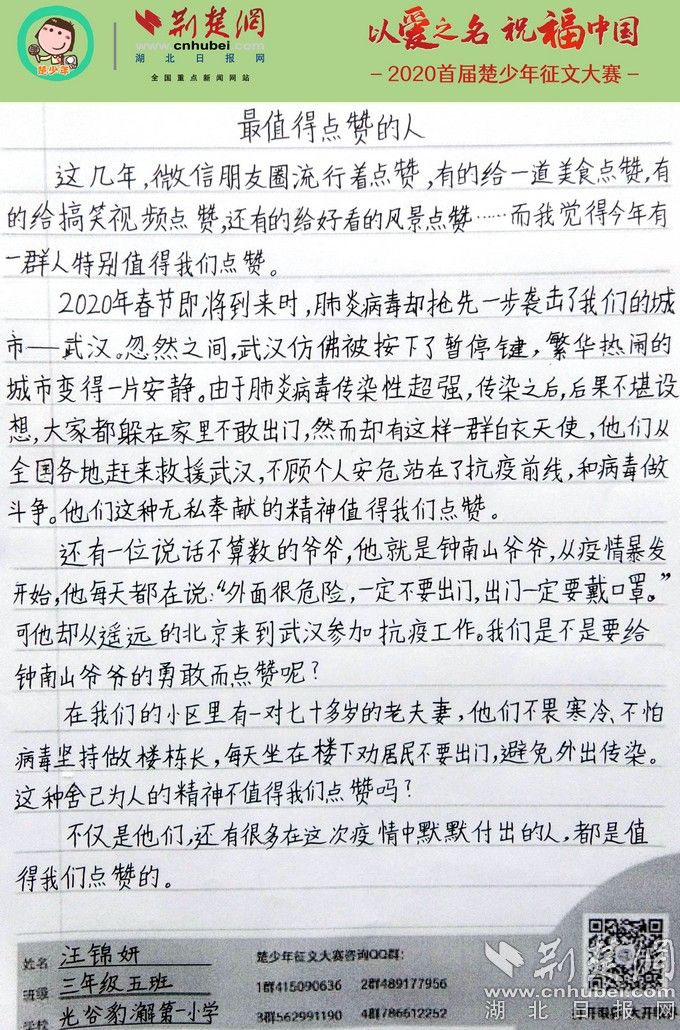 楚少年
荆楚网
www.cnhubei.com
湖北日报网
全国重点新闻网站
以爱之名 祝福中国
-2020首届楚少年征文大赛-
最值得点赞的人
这几年,微信朋友圈流行着点赞,有的给一道美食点赞,有
的给搞笑视频点赞,还有的给好看的风景点赞……而我觉得今年有
一群人特别值得我们点赞。
2020年春节即将到来时,肺炎病毒却抢先一步袭击了我们的城
市——武汉。忽然之间,武汉仿佛被按下了暂停键,繁华热闹的
城市变得一片安静。由于肺炎病毒传染性超强,传染之后,后果不堪设
想,大家都躲在家里不敢出门,然而却有这样一群白衣天使,他们从
全国各地赶来救援武汉,不顾个人安危站在了抗疫前线,和病毒做
斗争。他们这种无私奉献的精神值得我们点赞。
还有一位说话不算数的爷爷,他就是钟南山爷爷,从疫情暴发
开始,他每天都在说:“外面很危险,一定不要出门,出门一定要戴口罩。”
可他却从遥远的北京来到武汉参加抗疫工作。我们是不是要给
钟南山爷爷的勇敢而点赞呢?
在我们的小区里有一对七十多岁的老夫妻,他们不畏寒冷、不怕
病毒坚持做楼栋长,每天坐在楼下劝居民不要出门,避免外出传染。
这种舍己为人的精神不值得我们点赞吗?
不仅是他们,还有很多在这次疫情中默默付出的人,都是值
得我们点赞的。
姓名 汪锦妍
楚少年征文大赛咨询QQ群:
班级 三年级五班
1群415090636 2群489177956
学校 光谷豹澥第一小学
3群562991190 4群786612252
荆楚网
www.cnhubei.com
湖北日报网